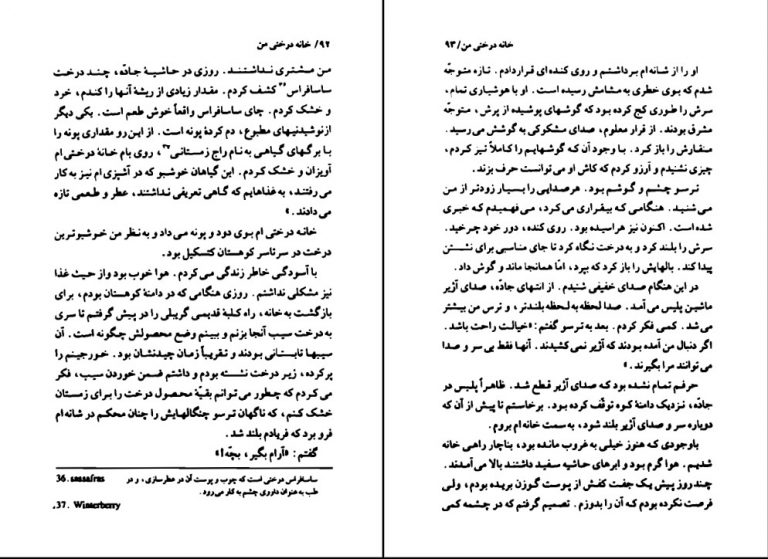 ۹۲/ خانه درختی من
من مشتری نداشتند. روزی در حاشیهٔ جادّه، چند درخت
ساسافراس۳۶ کشف کردم. مقدار زیادی از ریشهٔ آنها را کندم، خرد
و خشک کردم. چای ساسافراس واقعاً خوش طعم است. یکی دیگر
ازنوشیدنیهای مطبوع، دم کردهٔ پونه است. از این رو مقداری پونه را
با برگهای گیاهی به نام راج زمستانی۳۷، روی بام خانهٔ درختی ام
آویزان و خشک کردم. این گیاهان خوشبو که در آشپزی ام نیز به کار
می رفتند، به غذاهایم که گاهی تعریفی نداشتند، عطر و طعمی تازه
می دادند.»
خانه درختی ام بوی دود و پونه می داد و به نظر من خوشبوترین
درخت در سرتاسر کوهستان کتسکیل بود.
با آسودگی خاطر زندگی می کردم. هوا خوب بود واز حیث غذا
نیز مشکلی نداشتم. روزی هنگامی که در دامنهٔ کوهستان بودم، برای
بازگشت به خانه، راه کلبهٔ قدیمی گریبلی را در پیش گرفتم تا سری
به درخت سیب آنجا بزنم و ببینم وضع محصولش چگونه است. آن
سیبها تابستانی بودند و تقریباً زمان چیدنشان بود. خورجینم را
پرکرده، زیر درخت نشسته بودم و داشتم ضمن خوردن سیب، فکر
می کردم که چطور می توانم بقیّهٔ محصول درخت را برای زمستان
خشک کنم، که ناگهان ترسو چنگالهایش را چنان محکم در شانه ام
فرو برد که فریادم بلند شد.
گفتم: «آرام بگیر، بچّه!»
36. sassafras ساسافراس درختی است که چوب و پوست آن در عطرسازی، و در
طب به عنوان داروی چشم به کار می رود.
37. Winterberry
خانه درختی من/ ۹۳
او را از شانه ام برداشتم و روی کنده ای قراردادم. تازه متوجّه
شدم که بوی خطری به مشامش رسیده است. او با هوشیاری تمام،
سرش را طوری کج کرده بود که گوشهای پوشیده از پرش، متوجّه
مشرق بودند. از قرار معلوم، صدای مشکوکی به گوشش می رسید.
منقارش را باز کرد. با وجود آن که گوشهایم را کاملاً تیز کردم،
چیزی نشنیدم و آرزو کردم که کاش او می توانست حرف بزند.
ترسو چشم و گوشم بود. هرصدایی را بسیار زودتر از من
می شنید. هنگامی که بیقراری می کرد، می فهمیدم که خبری
شده است. اکنون نیز هراسیده بود. روی کنده، دور خود چرخید.
سرش را بلند کرد و به درخت نگاه کرد تا جای مناسبی برای نشستن
پیدا کند. بالهایش را باز کرد که بپرد، امّا همانجا ماند و گوش داد.
در این هنگام صدای خفیفی شنیدم. از انتهای جادّه، صدای آژیر
ماشین پلیس می آمد. صدا لحظه به لحظه بلندتر، و ترس من بیشتر
می شد. کمی فکر کردم. بعد به ترسو گفتم: «خیالت راحت باشد.
اگر دنبال من آمده بودند که آژیر نمی کشیدند. آنها فقط بی سر و صدا
می توانند مرا بگیرند.»
حرفم تمام نشده بود که صدای آژیر قطع شد. ظاهراً پلیس در
جادّه، نزدیک دامنهٔ کوه توقّف کرده بود. برخاستم تا پیش از آن که
دوباره سر و صدای آژیر بلند شود، به سمت خانه ام بروم.
باوجودی که هنوز خیلی به غروب مانده بود، بناچار راهی خانه
شدیم. هوا گرم بود و ابرهای حاشیه سفید داشتند بالا می آمدند.
چند روز پیش یک جفت کفش از پوست گوزن بریده بودم، ولی
فرصت نکرده بودم که آن را بدوزم. تصمیم گرفتم که در چشمه کمی